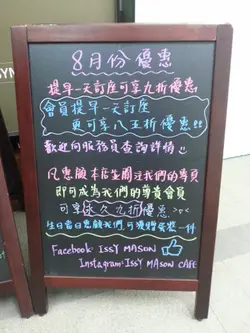 8月份優惠
提早一天訂座可享九折優惠!
會員提早一天訂座
更可享八五折優惠!!
歡迎向服務員查詢詳情!!
凡惠顧本店並關注我們的專頁
即可成為我們的尊貴會員
可享永久九折優惠 >v<
生日當日惠顧我們,可獲贈蛋糕一件
Facebook: ISSY MASON
Instagram: ISSY MASON CAFE